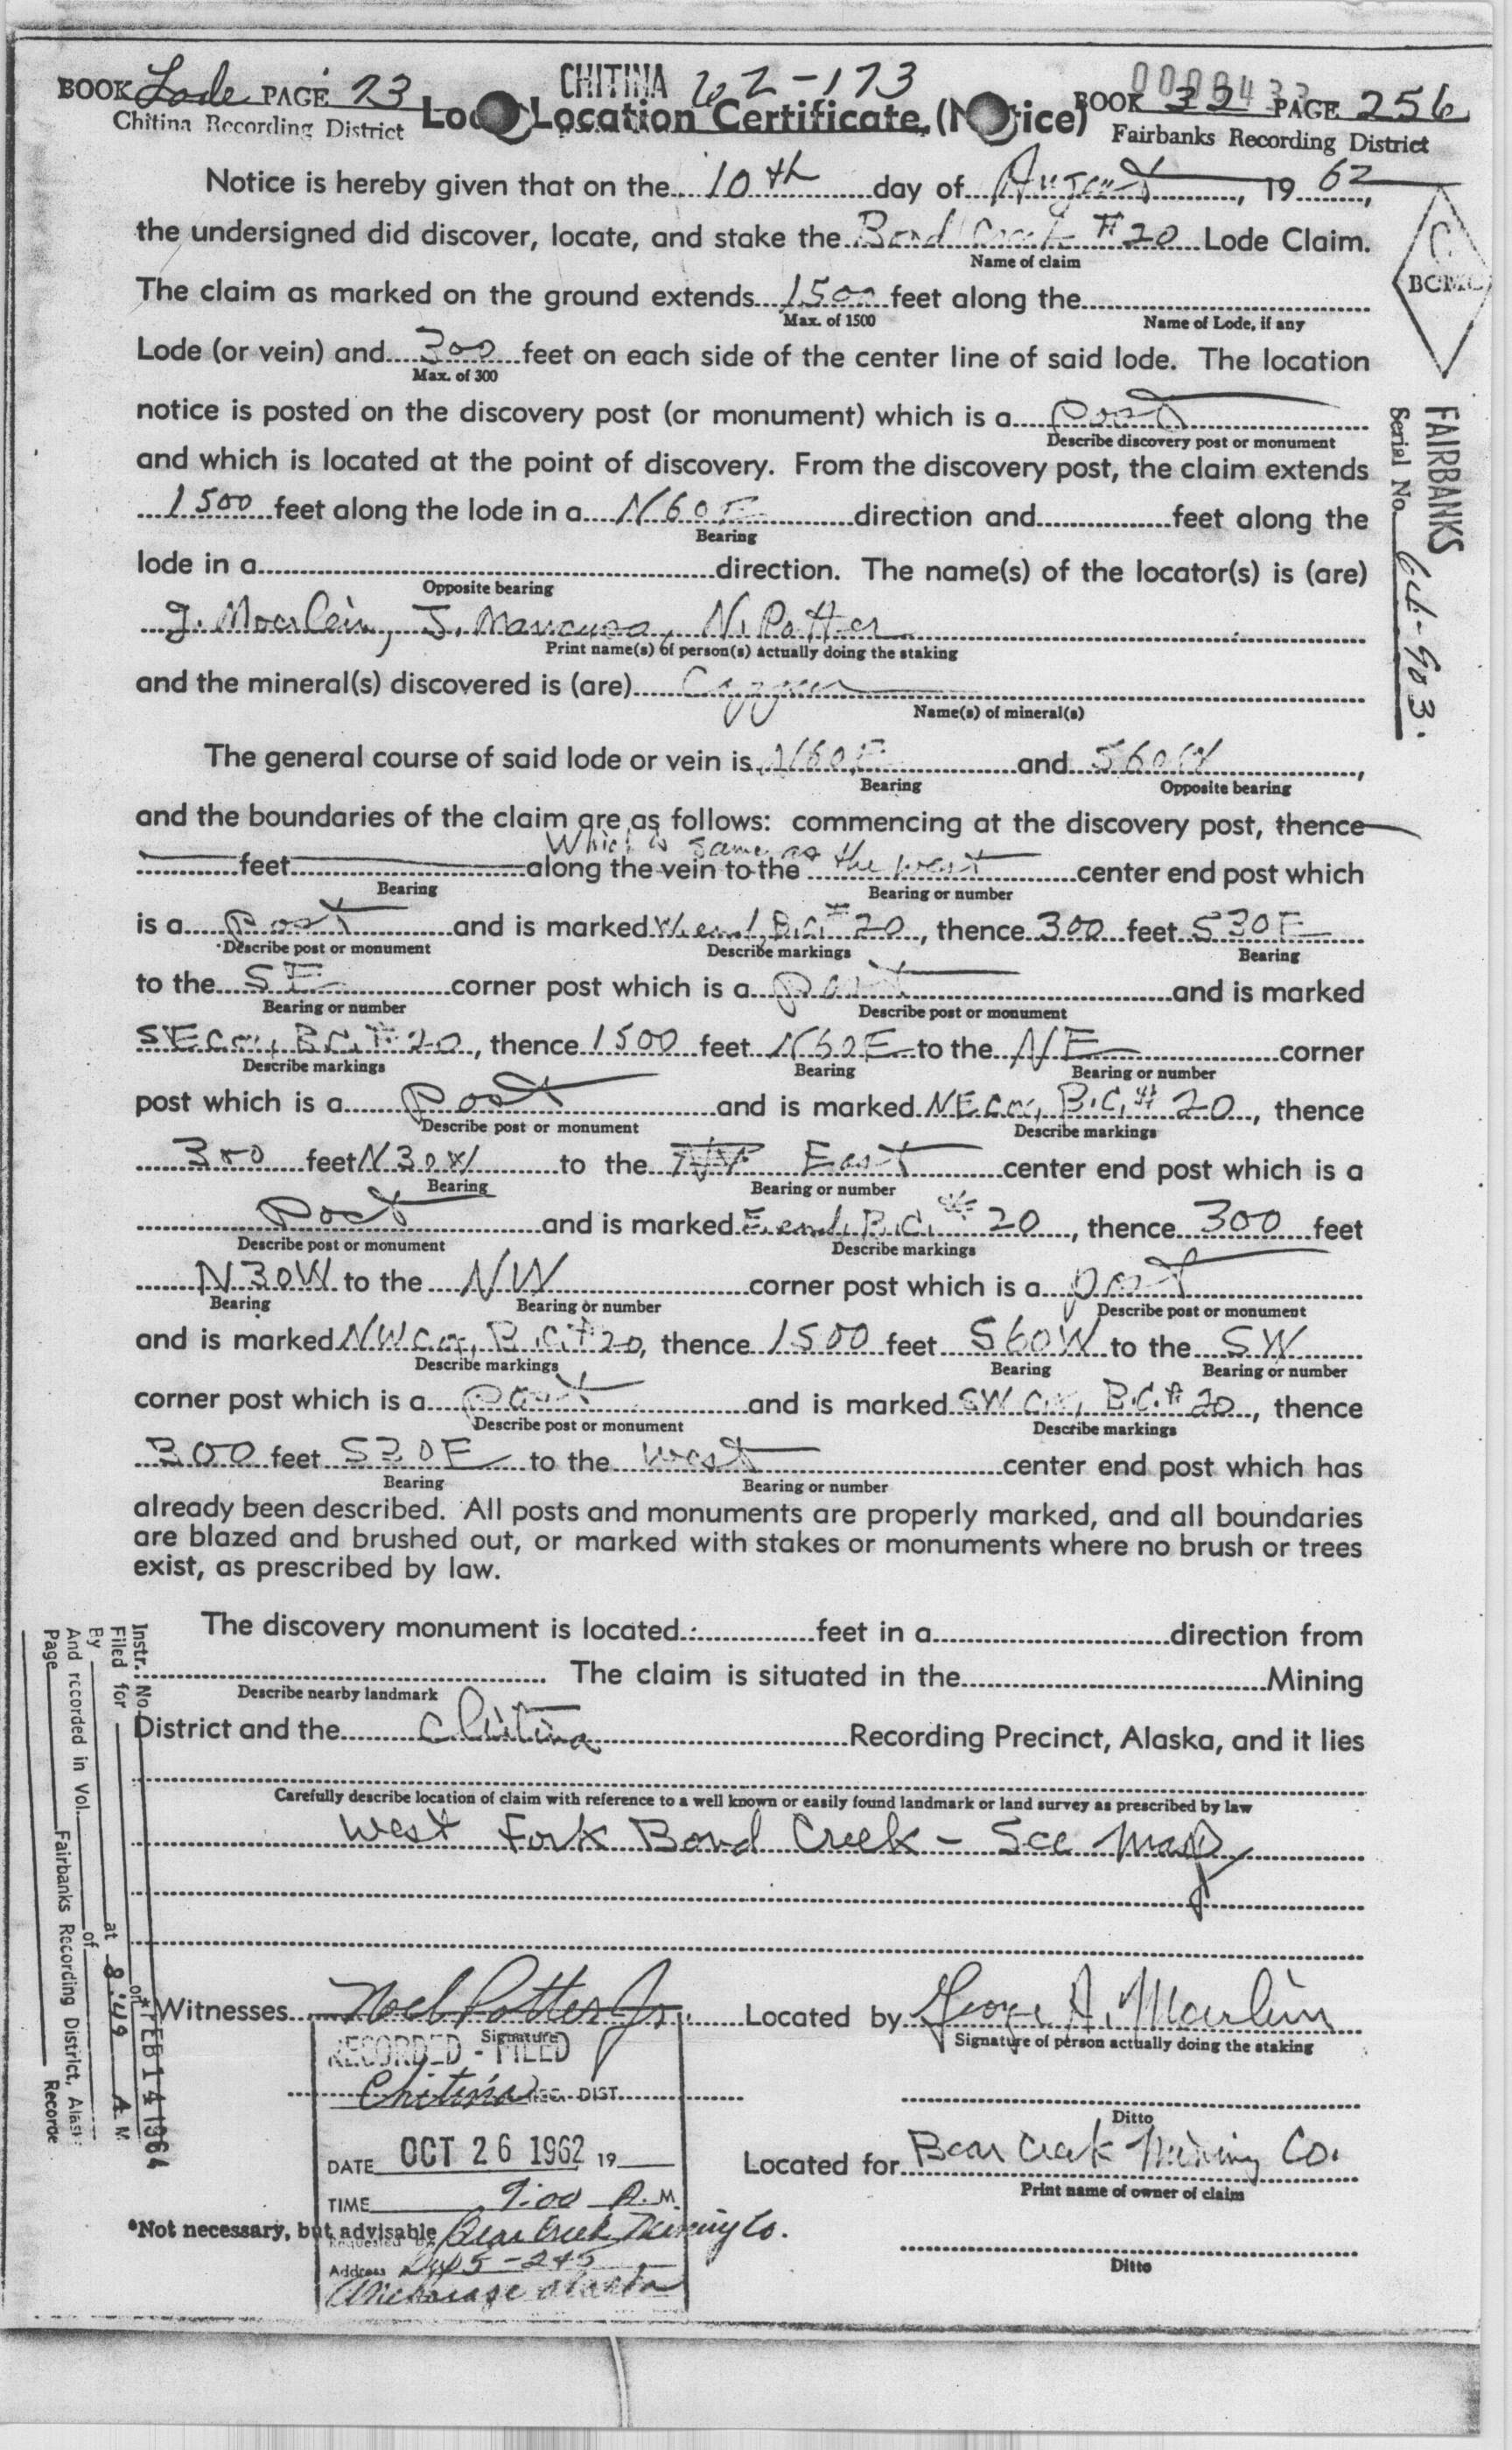 BOOK Lode PAGE 73
Chitina Recording District
CHITINA 62-173
BOOK 32 PAGE 256
Fairbanks Recording District
Location Certificate, (Notice)
Notice is hereby given that on the 10th day of August, 1962,
the undersigned did discover, locate, and stake the Bond Creek #20 Lode Claim.
Name of claim
BCMC
The claim as marked on the ground extends 1500 feet along the
Max. of 1500 Name of Lode, if any
Lode (or vein) and 300 feet on each side of the center line of said lode. The location
Max. of 300
notice is posted on the discovery post (or monument) which is a post
Describe discovery post or monument
and which is located at the point of discovery. From the discovery post, the claim extends
1500 feet along the lode in a N60E direction and feet along the
Bearing
lode in a direction. The name(s) of the locator(s) is (are)
Opposite bearing
J. Moerlein, J. Mancuso, N. Potter
Print name(s) of person(s) actually doing the staking
and the mineral(s) discovered is (are) Copper
Name(s) of mineral(s)
FAIRBANKS
Serial No. 64-903.
The general course of said lode or vein is N60E and S60W,
Bearing Opposite bearing
and the boundaries of the claim are as follows: commencing at the discovery post, thence
Which is same as
feet along the vein to the the west center end post which
Bearing Bearing or number
is a post and is marked W. end, B.C. #20, thence 300 feet S30E
Describe post or monument Describe markings Bearing
to the SE corner post which is a post and is marked
Bearing or number Describe post or monument
SE Cor, B.C. #20, thence 1500 feet N60E to the NE corner
Describe markings Bearing Bearing or number
post which is a post and is marked NE Cor, B.C. #20, thence
Describe post or monument Describe markings
300 feet N30W to the East center end post which is a
Bearing Bearing or number
post and is marked E. end, B.C. #20, thence 300 feet
Describe post or monument Describe markings
N30W to the NW corner post which is a post
Bearing Bearing or number Describe post or monument
and is marked NW Cor, B.C. #20, thence 1500 feet S60W to the SW
Describe markings Bearing Bearing or number
corner post which is a post and is marked SW Cor, B.C. #20, thence
Describe post or monument Describe markings
300 feet S30E to the west center end post which has
Bearing Bearing or number
already been described. All posts and monuments are properly marked, and all boundaries
are blazed and brushed out, or marked with stakes or monuments where no brush or trees
exist, as prescribed by law.
The discovery monument is located feet in a direction from
The claim is situated in the Mining
Describe nearby landmark
District and the Chitina Recording Precinct, Alaska, and it lies
Carefully describe location of claim with reference to a well known or easily found landmark or land survey as prescribed by law
West Fork Bond Creek - See map
Instr. No.
Filed for at 8:49 A M on FEB 14 1964
By of
And recorded in Vol. Fairbanks Recording District, Alaska
Page Recorder
Witnesses Noel Potter Jr. Located by George A. Moerlein
Signature Signature of person actually doing the staking
RECORDED - FILED
Chitina REC. DIST.
Ditto
DATE OCT 26 1962 19
Located for Bear Creek Mining Co.
Print name of owner of claim
TIME 9:00 A.M.
*Not necessary, but advisable
Requested by Bear Creek Mining Co.
Ditto
Address
Anchorage Alaska